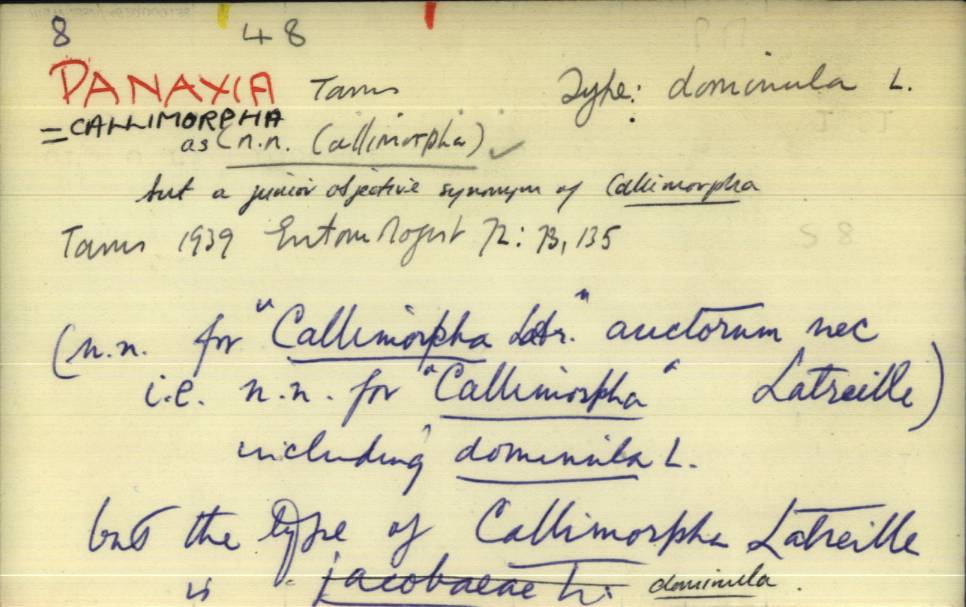 8 48
PANAXIA Tams Type: dominula L.
= CALLIMORPHA
as (n.n. Callimorpha) ✓
but a junior objective synonym of Callimorpha
Tams 1939 Entomologist 72: 73, 135
(n.n. for "Callimorpha Latr." auctorum nec
i.e. n.n. for "Callimorpha" Latreille)
including dominula L.
but the type of Callimorpha Latreille
is jacobaeae L. dominula.